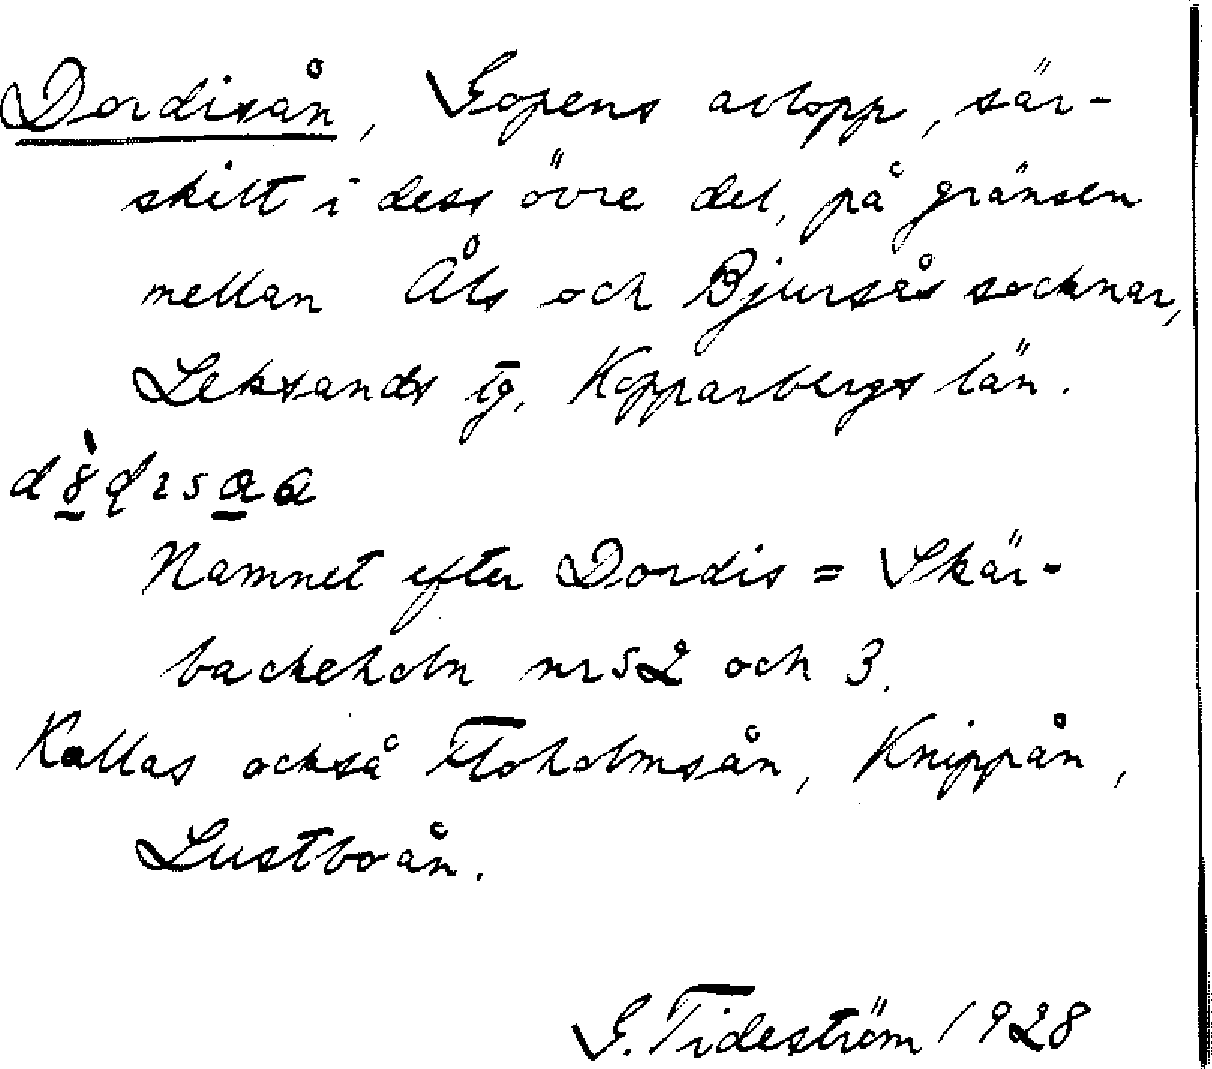 Dordisån, Gopens avlopp, sär-
skilt i dess övre del, på gränsen
mellan Åls och Bjursås socknar,
Leksands tg, Kopparbergs län.
Namnet efter Dordis = Skär-
backeholn nrs 2 och 3.
Kallas också Floholmsån, Knippån,
Lustboån.
G. Tideström 1928